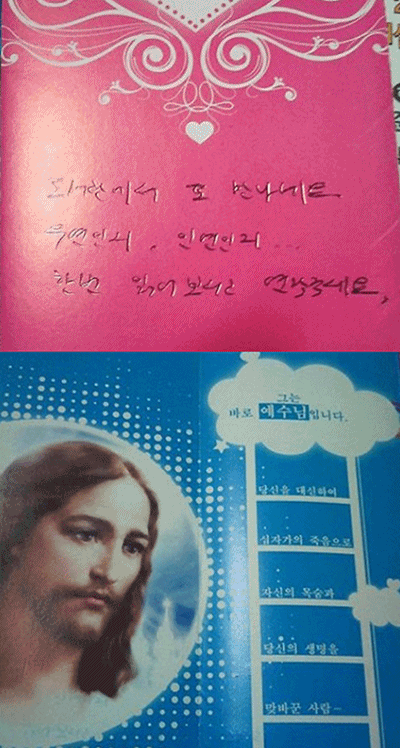 도서관에서 또 만나네요
우연인지, 인연인지...
한번 읽어보시고 연락주세요,
그는
바로 예수님입니다.
당신을 대신하여
십자가의 죽음으로
자신의 목숨과
당신의 생명을
맞바꾼 사람-